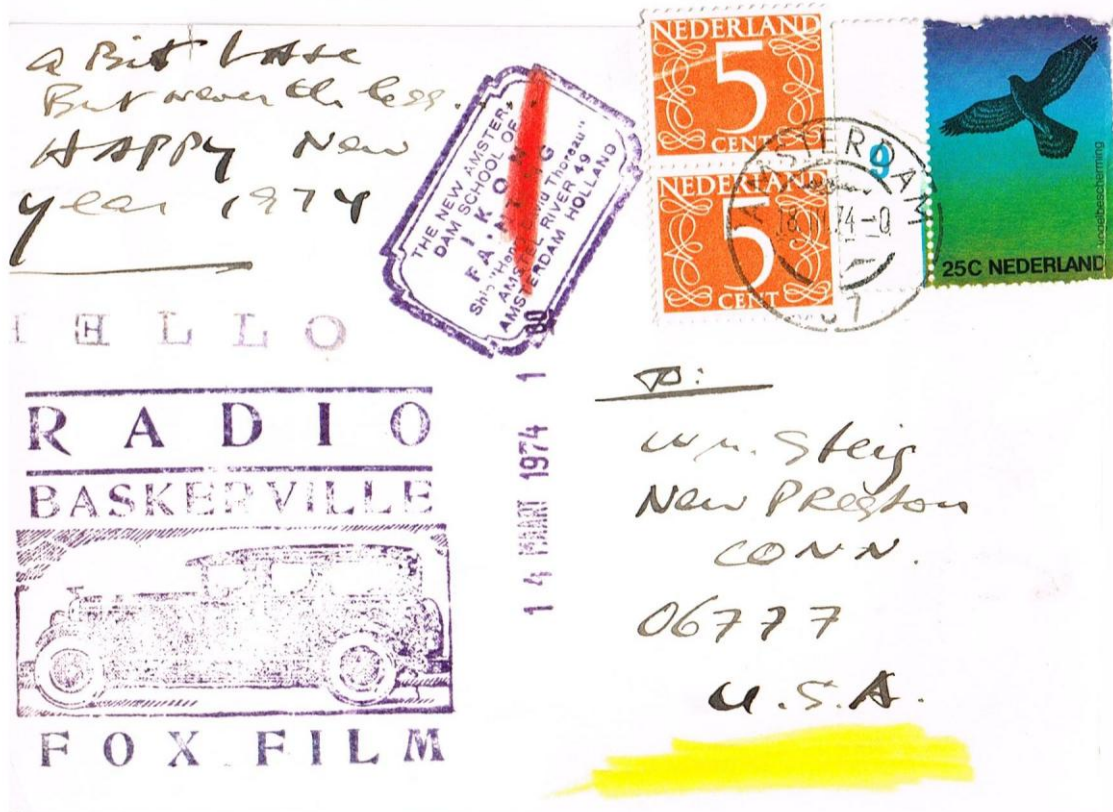 a Bit Late
But never the less...
HAPPY New
year 1974
HELLO
RADIO
BASKERVILLE
FOX FILM
THE NEW AMSTER,
DAM SCHOOL OF
I K O N
PA NT NG
Ship "Henry David Thoreau"
AMSTEL RIVER 49
AMSTERDAM HOLLAND
14 MAART 1974 1
NEDERLAND
5
CENT
NEDERLAND
5
CENT
AMSTERDAM
9
25C NEDERLAND
To:
Wm. Steig
New Preston
CONN.
06777
U.S.A.